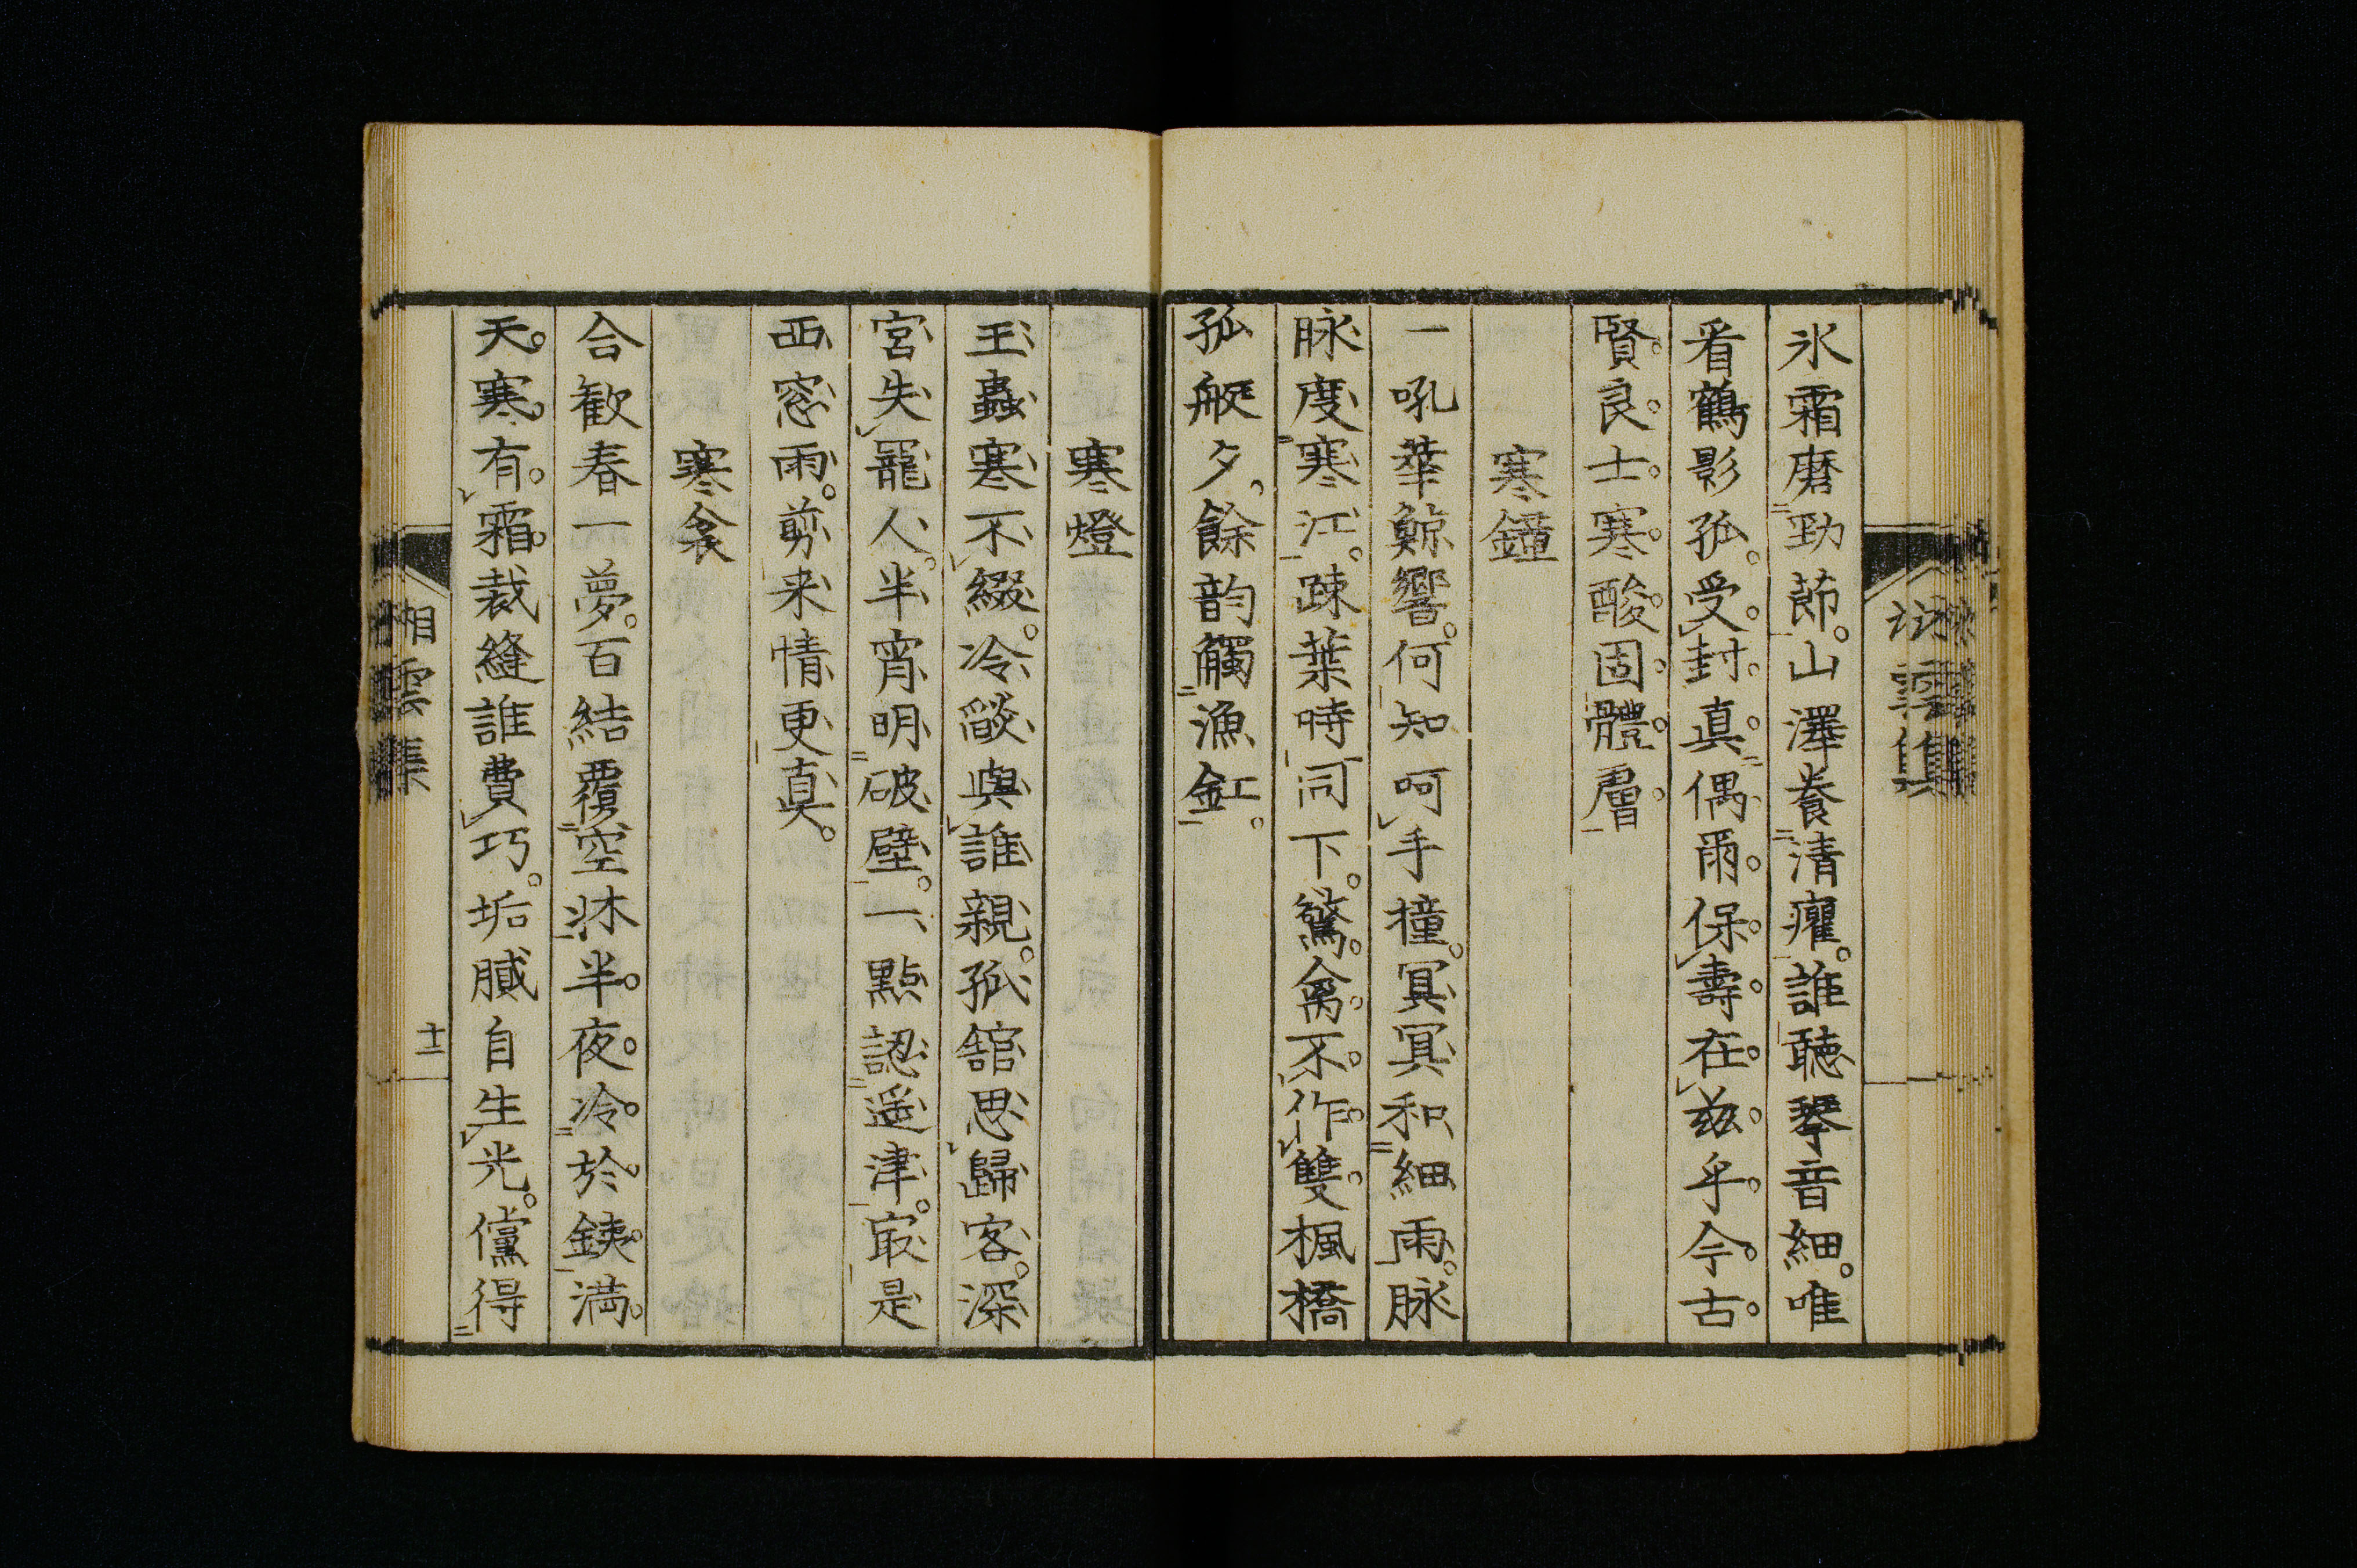 氷霜磨勁節。山澤養清癯。誰聴琴音細。唯
看鶴影孤。受封真偶爾。保壽在茲乎。今古
賢良士。寒酸固體膚
寒鐘
一吼華鯨響。何知呵手撞。冥冥和細雨。脉
脉度寒江。疎葉時同下。驚禽不作雙。楓橋
孤艇夕。餘韵觸漁缸。
寒燈
玉蟲寒不綴。冷燄與誰親。孤舘思歸客。深
宮失寵人。半宵明破壁。一點認遥津。㝡是
西窓雨。剪来情更真。
寒衾
合歓春一夢。百結覆空牀。半夜冷於銕。満
天寒有霜。裁縫誰費巧。垢膩自生光。儻得
湘雲集
十二